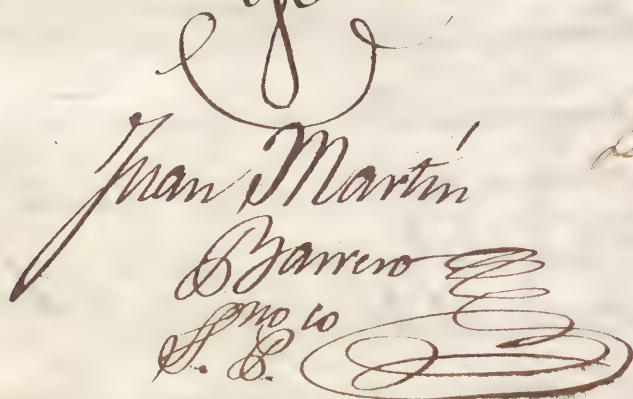 Juan Martín
Barrero
S.no E.co